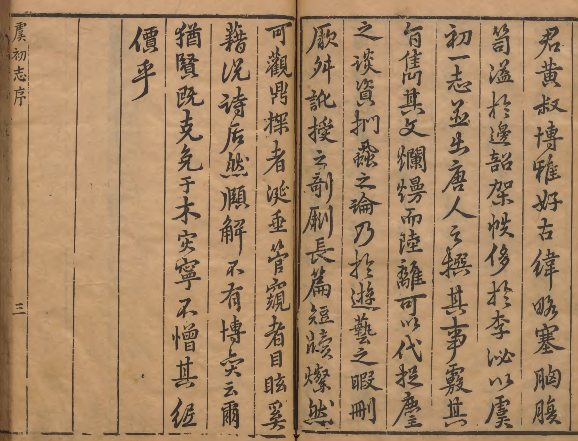 君黄叔博雅好古緯略塞胸腹
笥溢於邊韶架帙侈於李泌以虞
初一志並出唐人之撰其事覈其
旨雋其文爛熳而陸離可以代捉麈
之談資捫蝨之論乃於遊藝之暇刪
厥舛訛授之剞劂長篇短牘燦然
可觀鼎探者涎垂管窺者目眩奚
藉況詩后然頤解不有博奕云爾
猶賢既克免于木灾寧不憎其紙
價乎
虞初志序
三